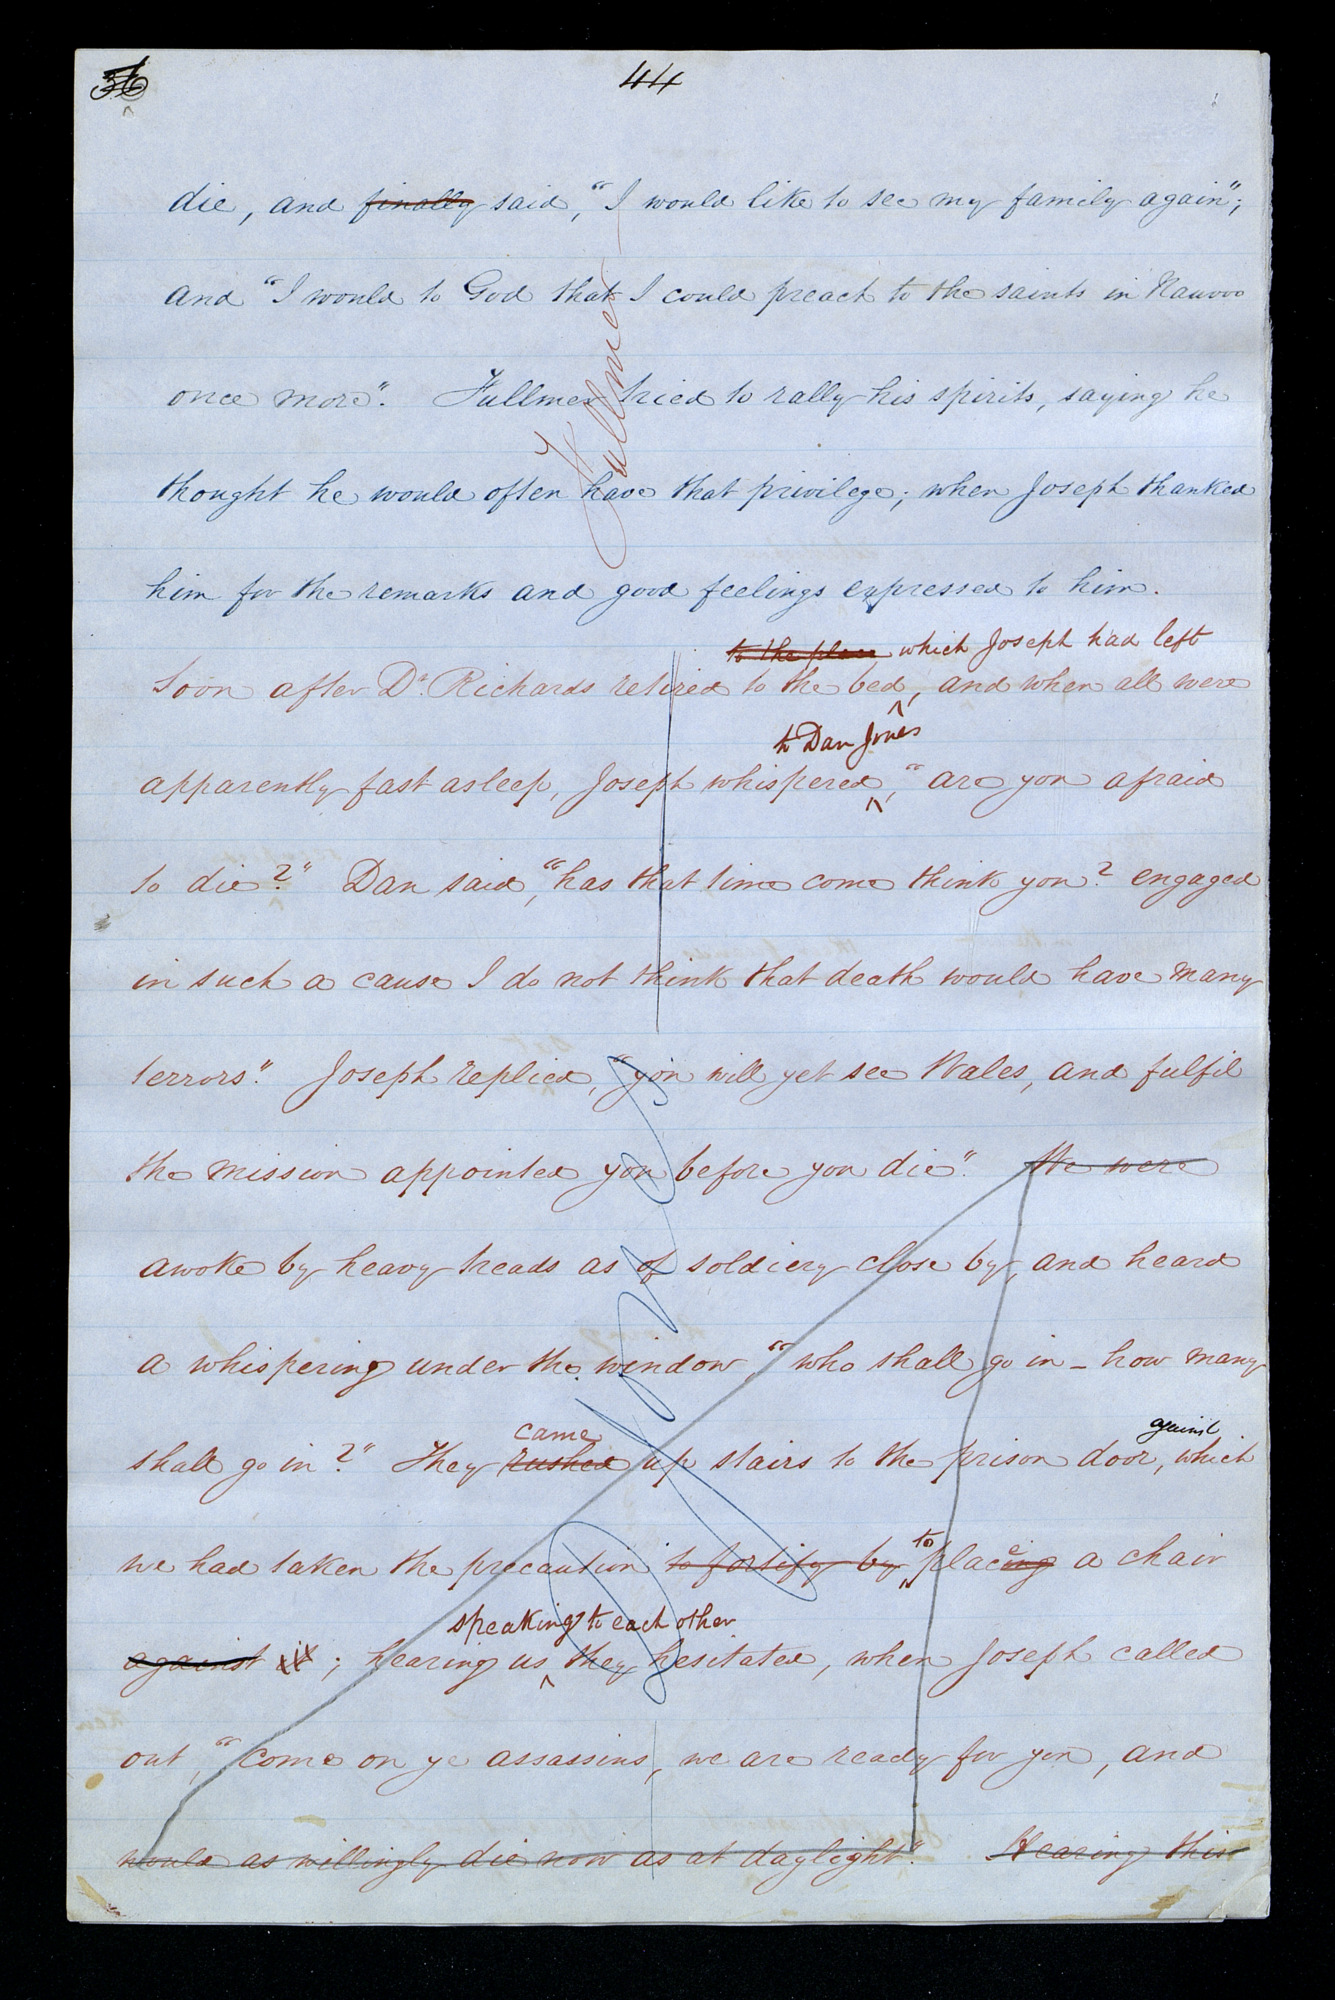 36 44
die, and finally said, "I would like to see my family again";
and "I would to God that I could preach to the saints in Nauvoo
once more". Fullmer tried to rally his spirits, saying he
thought he would often have that privilege; when Joseph thanked
him for the remarks and good feelings expressed to him.
Fullmer
to the place which Joseph had left
Soon after Dr. Richards retired to the bed, and when all were
to Dan Jones
apparently fast asleep, Joseph whispered, "are you afraid
to die?" Dan said, "has that time come think you? engaged
in such a cause I do not think that death would have many
terrors". Joseph replied, "you will yet see Wales, and fulfil
the mission appointed you before you die". We were
awoke by heavy treads as of soldiery close by, and heard
a whispering under the window, "who shall go in – how many
D Jones
came against
shall go in?" They rushed up stairs to the prison door, which
to
we had taken the precaution to fortify by placeing a chair
speaking to each other
against it; hearing us they hesitated, when Joseph called
out, "come on ye assassins, we are ready for you, and
would as willingly die now as at daylight". Hearing this